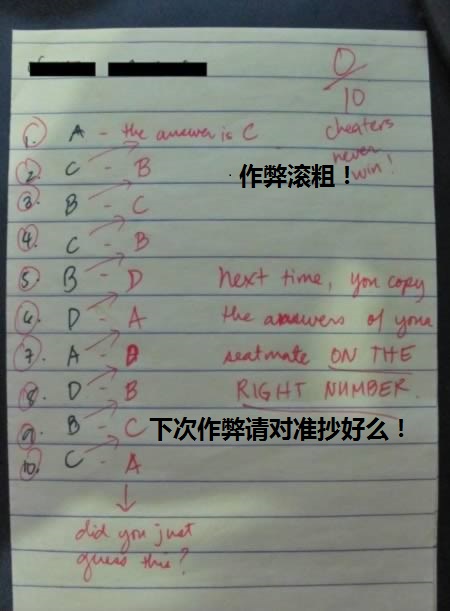 0
10
cheaters
never
win!
1. A - the answer is C
2. C - B
作弊滚粗！
3. B - C
4. C - B
5. B - D
next time, you copy
6. D - A
the answers of your
7. A - D
seatmate ON THE
8. D - B
RIGHT NUMBER.
9. B - C
下次作弊请对准抄好么！
10. C - A
did you just
guess this?